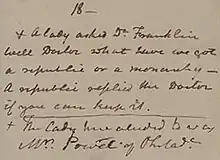 18 —
+ A lady asked Dr. Franklin
well Doctor what have we got
a republic or a monarchy —
A republic replied the Doctor
if you can keep it.
+ The Lady here aluded to was
Mrs. Powel of Philada.